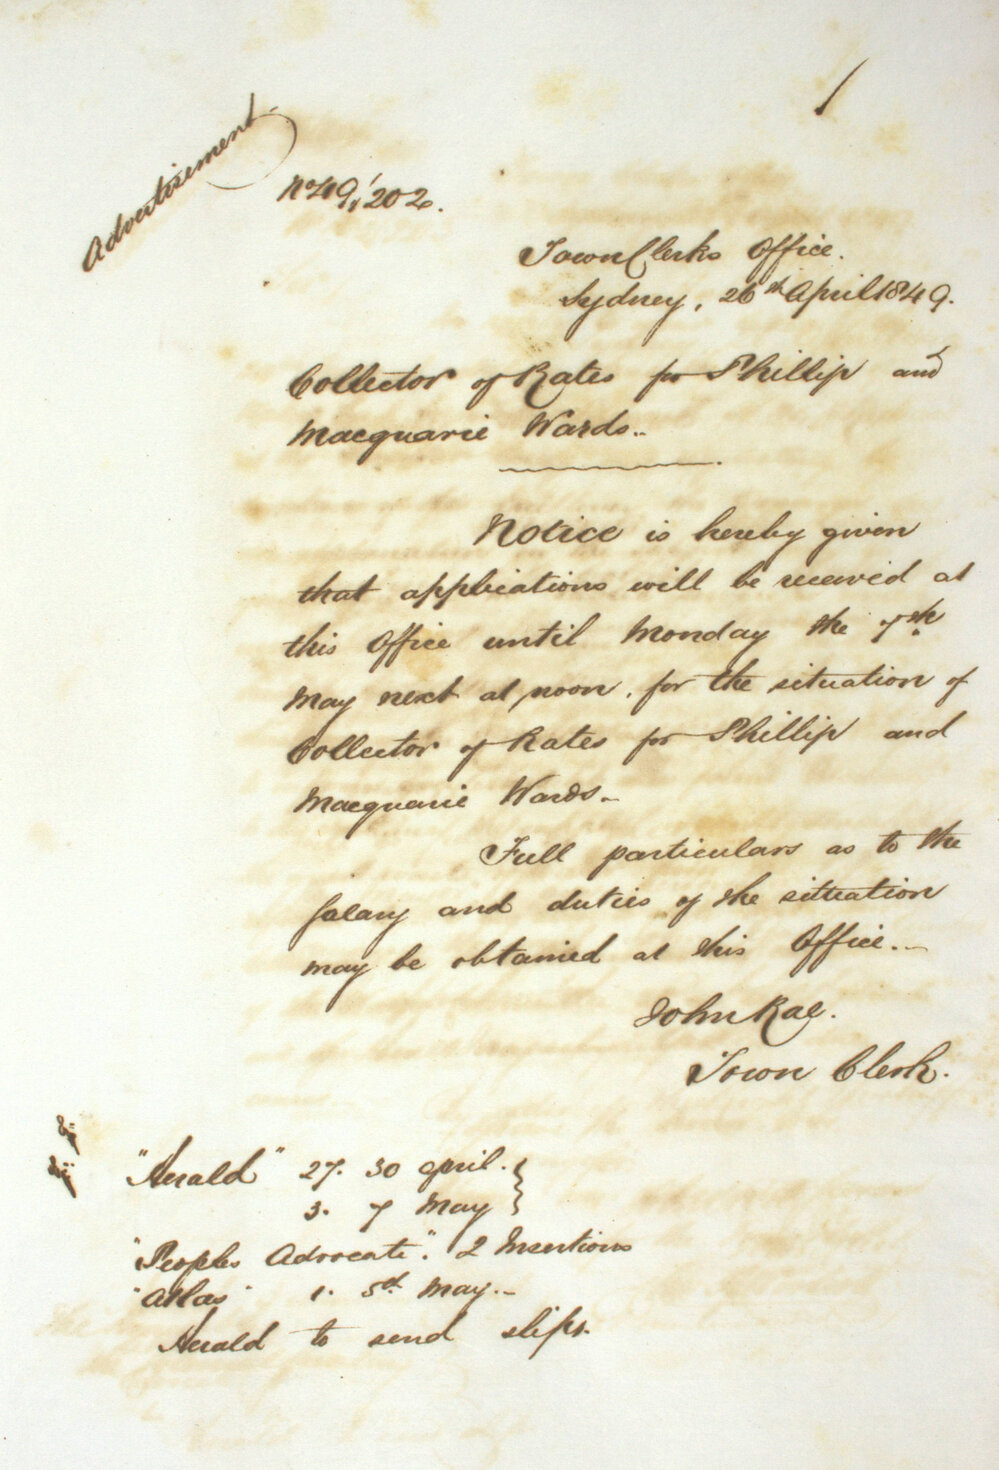 1
Advertisement
No 49/202.
Town Clerks Office.
Sydney, 26th April 1849.
Collector of Rates for Phillip and
Macquarie Wards..
Notice is hereby given
that applications will be received at
this Office until Monday the 7th
May next at noon, for the situation of
Collector of Rates for Phillip and
Macquarie Wards.
Full particulars as to the
salary and duties of the situation
may be obtained at this Office.
John Rae.
Town Clerk.
"Herald" 27. 30 April.
3. 7 May
"Peoples Advocate". 2 Insertions
"Atlas" 1. 5th May.
Herald to send slips.